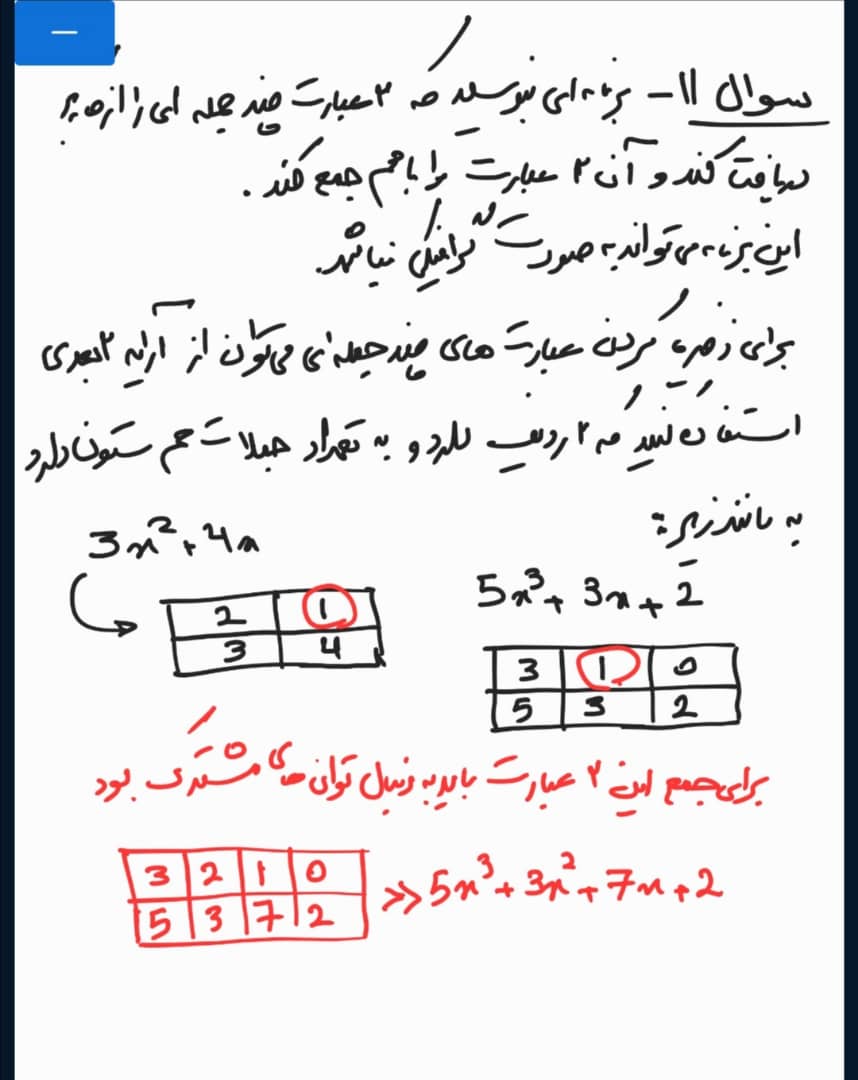 سوال 11- برنامه ای بنویسید که ۲ عبارت چند جمله ای را از ورودی
دریافت کند و آن ۲ عبارت را با هم جمع کند .
این برنامه می تواند به صورت گرافیکی نباشد.
برای ذخیره کردن عبارت های چند جمله ای می توان از آرایه ۲ بعدی
استفاده کنید که ۲ ردیف دارد و به تعداد جملات هم ستون دارد
به مانند زیر :
3x² + 4x
5x³ + 3x + 2
2 1
3 4
3 1 0
5 3 2
برای جمع این ۲ عبارت باید به دنبال توان های مشترک بود
3 2 1 0
5 3 7 2
>> 5x³ + 3x² + 7x + 2